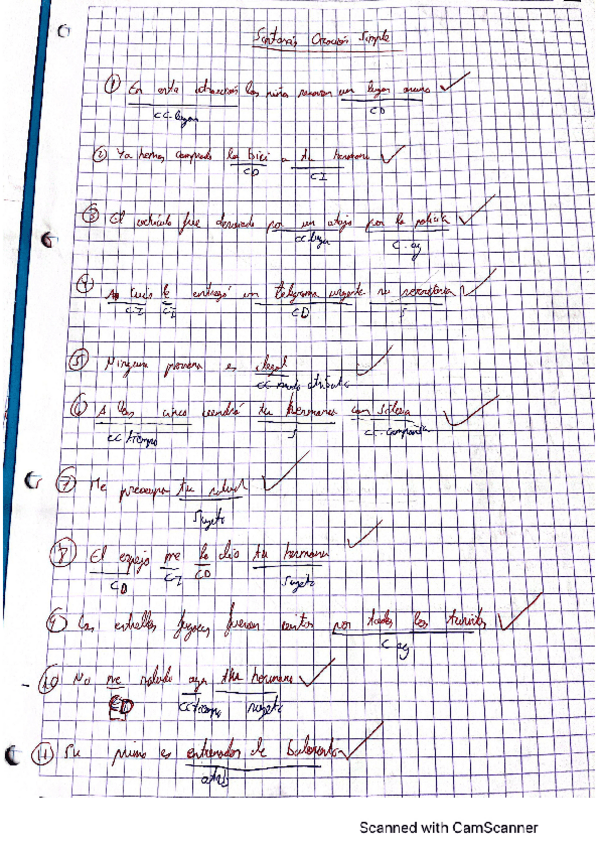 Sintaxis Oración Simple
① En esta los niños un lugar
CC. lugar CD
② Ya hemos comprado la bici a tu hermano
CD CI
③ El vehículo fue desviado por un atajo por la policía
CC lugar C. ag
④ A Luis le entregó un telegrama urgente su secretaria
CI CI CD S
⑤ Ninguna persona es ilegal
CC modo atributo
⑥ A las cinco vendrá tu hermana con Silvia
CC tiempo S C. compañía
⑦ Me preocupa tu salud
Sujeto
⑧ El espejo me lo dio tu hermana
CD CI CD Sujeto
⑨ Las estrellas fugaces fueron vistas por todos los turistas
C ag
⑩ No me saludó ayer tu hermano
CD CC tiempo sujeto
⑪ Su primo es entrenador de balonmano
atrib
Scanned with CamScanner